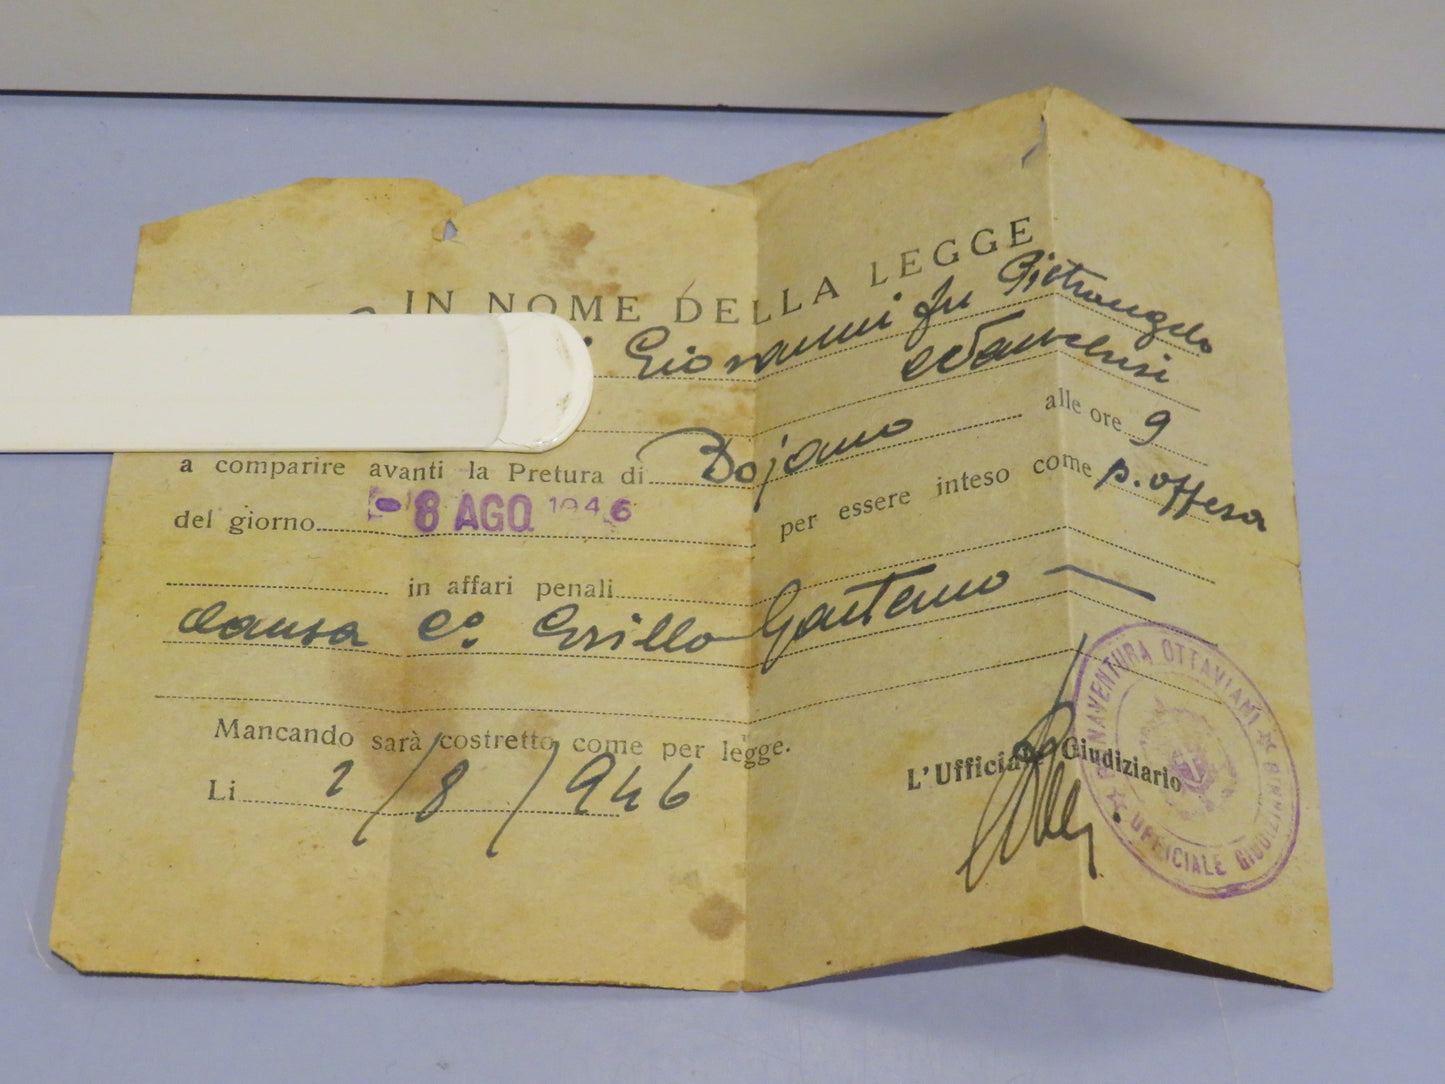 IN NOME DELLA LEGGE
Giovanni fu Pietrangelo
a comparire avanti la Pretura di Bojano alle ore 9
del giorno - 8 AGO 1946 per essere inteso come p. offesa
in affari penali
causa Co Grillo Gaetano
Mancando sarà costretto come per legge.
Li 2/8/946
L'Ufficiale Giudiziario
BONAVENTURA OTTAVIANI
UFFICIALE GIUDIZIARIO